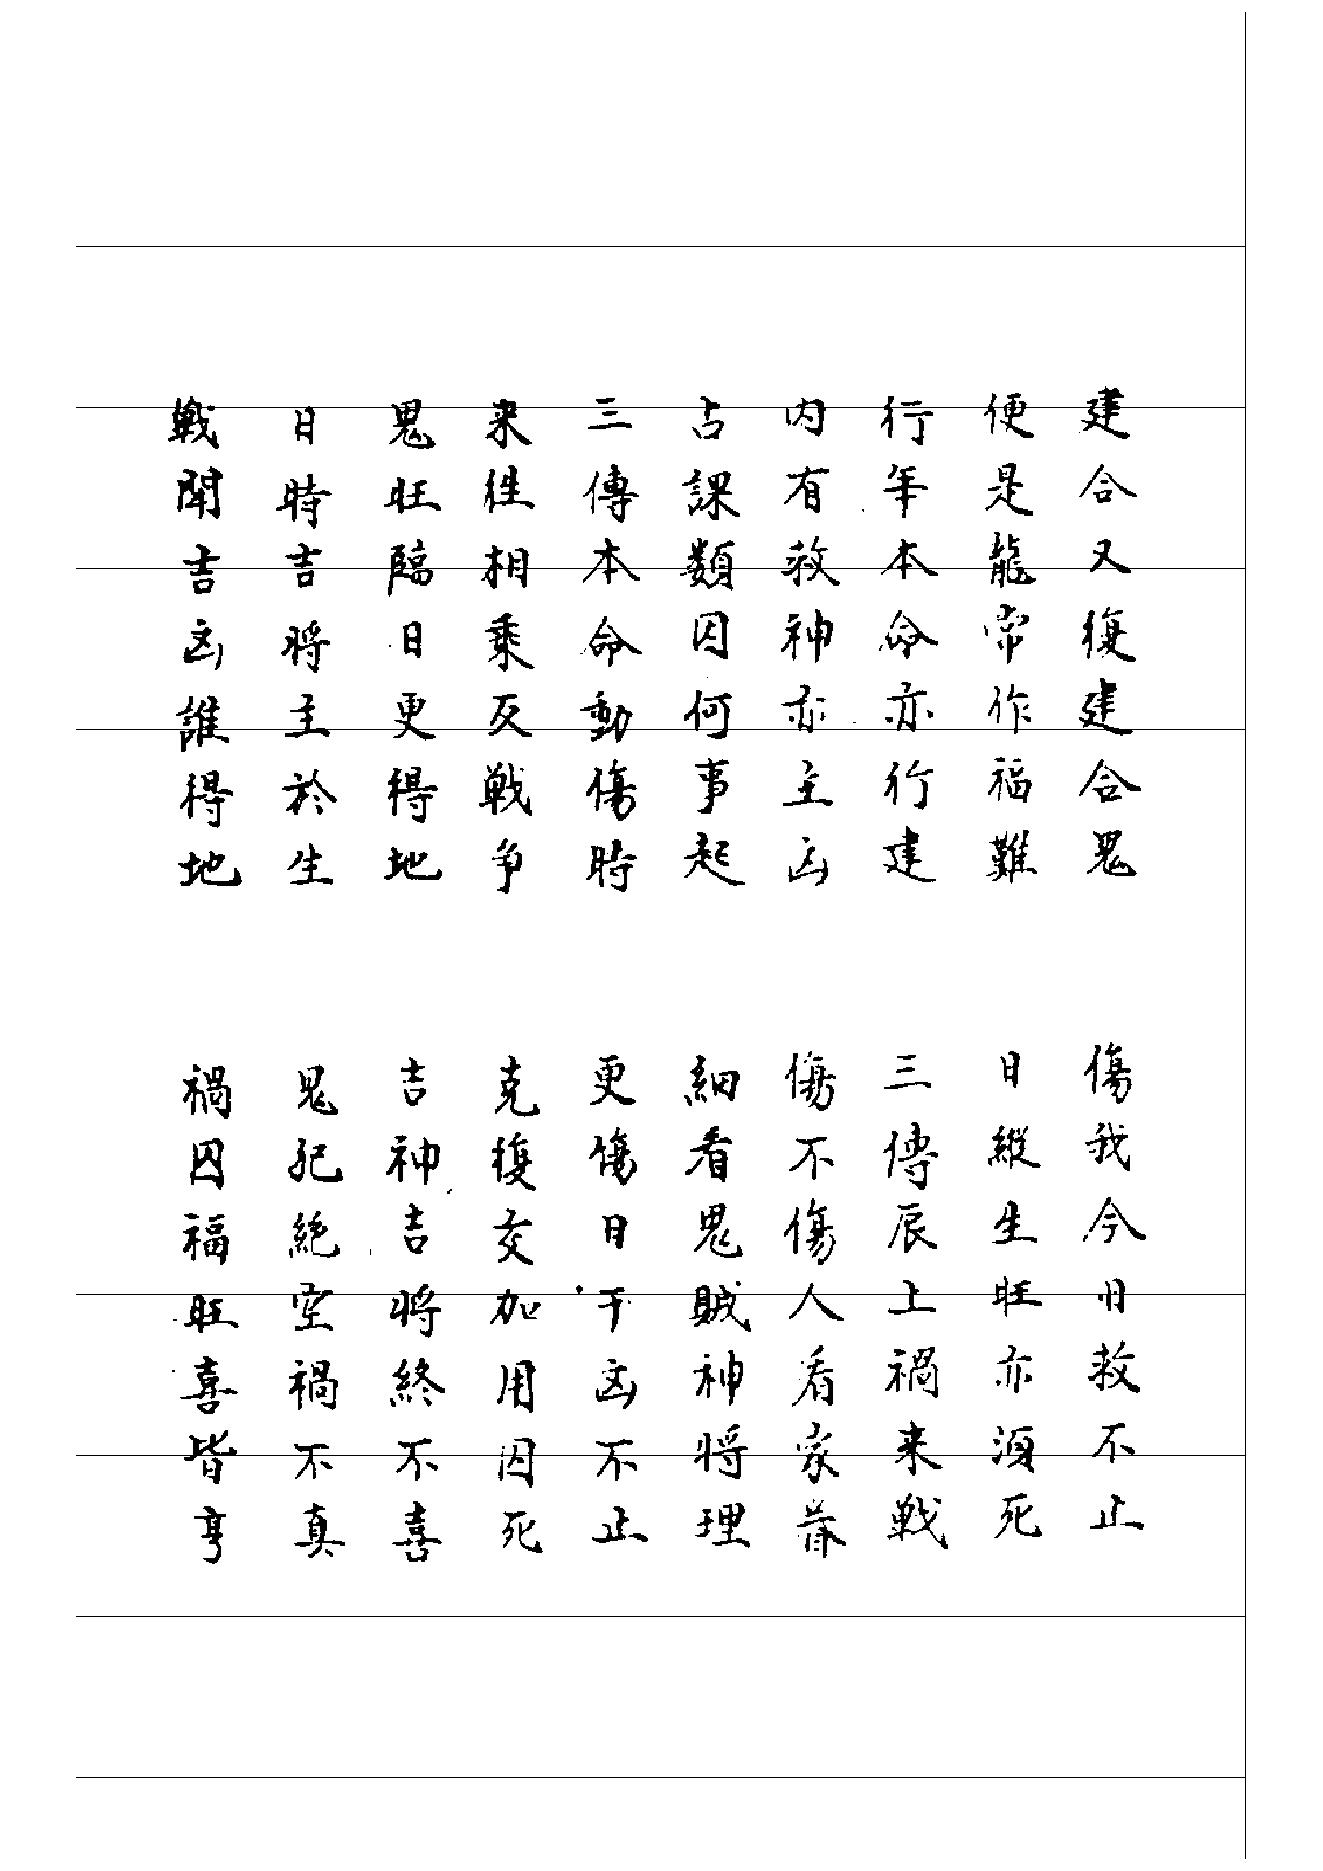 建合又復建合鬼　傷我今日救不止
便是龍常作福難　日縱生旺亦須死
行年本命亦行建　三傳辰上禍来戰
内有救神亦主凶　傷不傷人看家昔
占課類因何事起　細看鬼賊神將理
三傳本命動傷時　更傷日干凶不止
来往相乘反戰争　克復交加用囚死
鬼旺臨日更得地　吉神吉將終不喜
日時吉將主於生　鬼犯絕空禍不真
戰閗吉凶誰得地　禍囚福旺喜皆亨